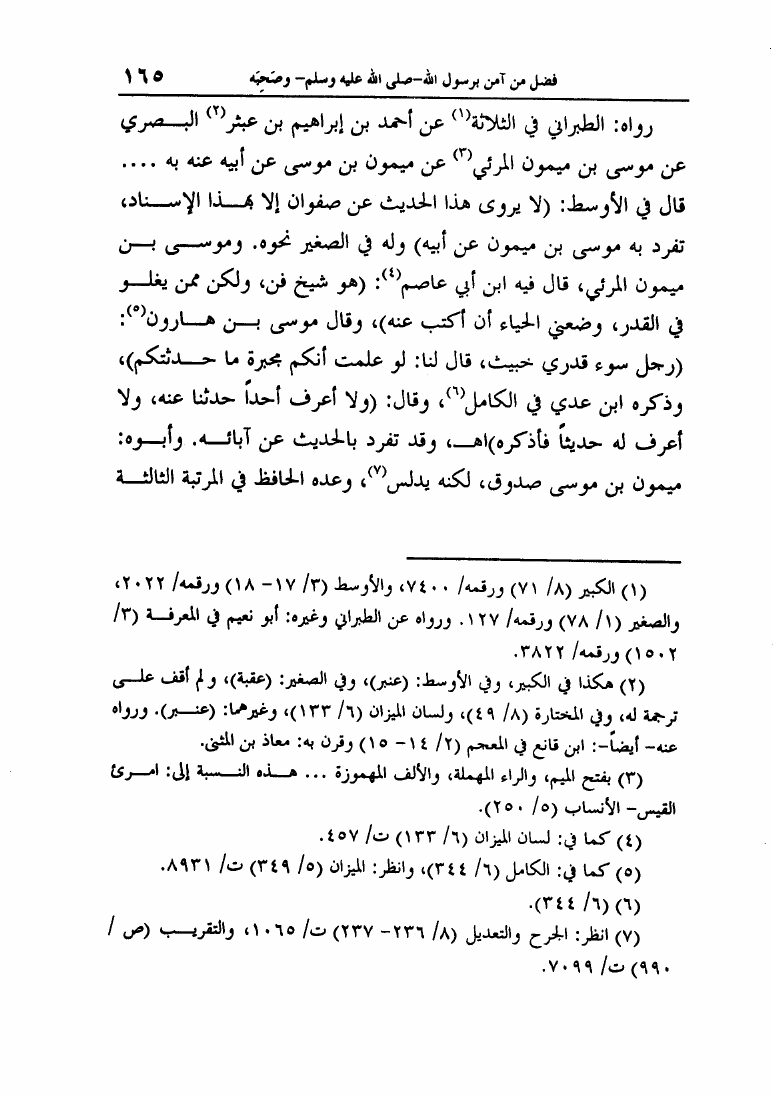 فضل من آمن برسول الله-صلى الله عليه وسلم- وصَحِبَه ١٦٥
رواه: الطبراني في الثلاثة(١) عن أحمد بن إبراهيم بن عبثر(٢) البـــصري
عن موسى بن ميمون المرئي(٣) عن ميمون بن موسى عن أبيه عنه به ....
قال في الأوسط: (لا يروى هذا الحديث عن صفوان إلا بهـــذا الإســـناد،
تفرد به موسى بن ميمون عن أبيه) وله في الصغير نحوه. وموســـى بـــن
ميمون المرئي، قال فيه ابن أبي عاصم(٤): (هو شيخ فن، ولكن ممن يغلـــو
في القدر، وضعني الحياء أن أكتب عنه)، وقال موسى بـــن هـــارون(٥):
(رجل سوء قدري خبيث، قال لنا: لو علمت أنكم مجبرة ما حـــدثتكم)،
وذكره ابن عدي في الكامل(٦)، وقال: (ولا أعرف أحداً حدثنا عنه، ولا
أعرف له حديثاً فأذكره)اهـــ، وقد تفرد بالحديث عن آبائـــه. وأبـــوه:
ميمون بن موسى صدوق، لكنه يدلس(٧)، وعده الحافظ في المرتبة الثالثـــة
(١) الكبير (٨/ ٧١) ورقمه/ ٧٤٠٠، والأوسط (٣/ ١٧- ١٨) ورقمه/ ٢٠٢٢،
والصغير (١/ ٧٨) ورقمه/ ١٢٧. ورواه عن الطبراني وغيره: أبو نعيم في المعرفـــة (٣/
١٥٠٢) ورقمه/ ٣٨٢٢.
(٢) هكذا في الكبير، وفي الأوسط: (عنبر)، وفي الصغير: (عقبة)، ولم أقف علـــى
ترجمة له، وفي المختارة (٨/ ٤٩)، ولسان الميزان (٦/ ١٣٣)، وغيرهما: (عنـــبر). ورواه
عنه- أيضاً-: ابن قانع في المعجم (٢/ ١٤- ١٥) وقرن به: معاذ بن المثنى.
(٣) بفتح الميم، والراء المهملة، والألف المهموزة ... هـــذه النـــسبة إلى: امـــرئ
القيس- الأنساب (٥/ ٢٥٠).
(٤) كما في: لسان الميزان (٦/ ١٣٣) ت/ ٤٥٧.
(٥) كما في: الكامل (٦/ ٣٤٤)، وانظر: الميزان (٥/ ٣٤٩) ت/ ٨٩٣١.
(٦) (٦/ ٣٤٤).
(٧) انظر: الجرح والتعديل (٨/ ٢٣٦- ٢٣٧) ت/ ١٠٦٥، والتقريـــب (ص /
٩٩٠) ت/ ٧٠٩٩.